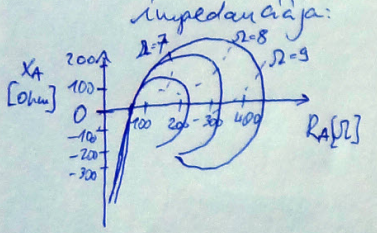 impedanciája:
Ω=7
Ω=8
Ω=9
X_A
[Ohm]
200
100
0
-100
-200
-300
100 200 300 400
R_A[Ω]